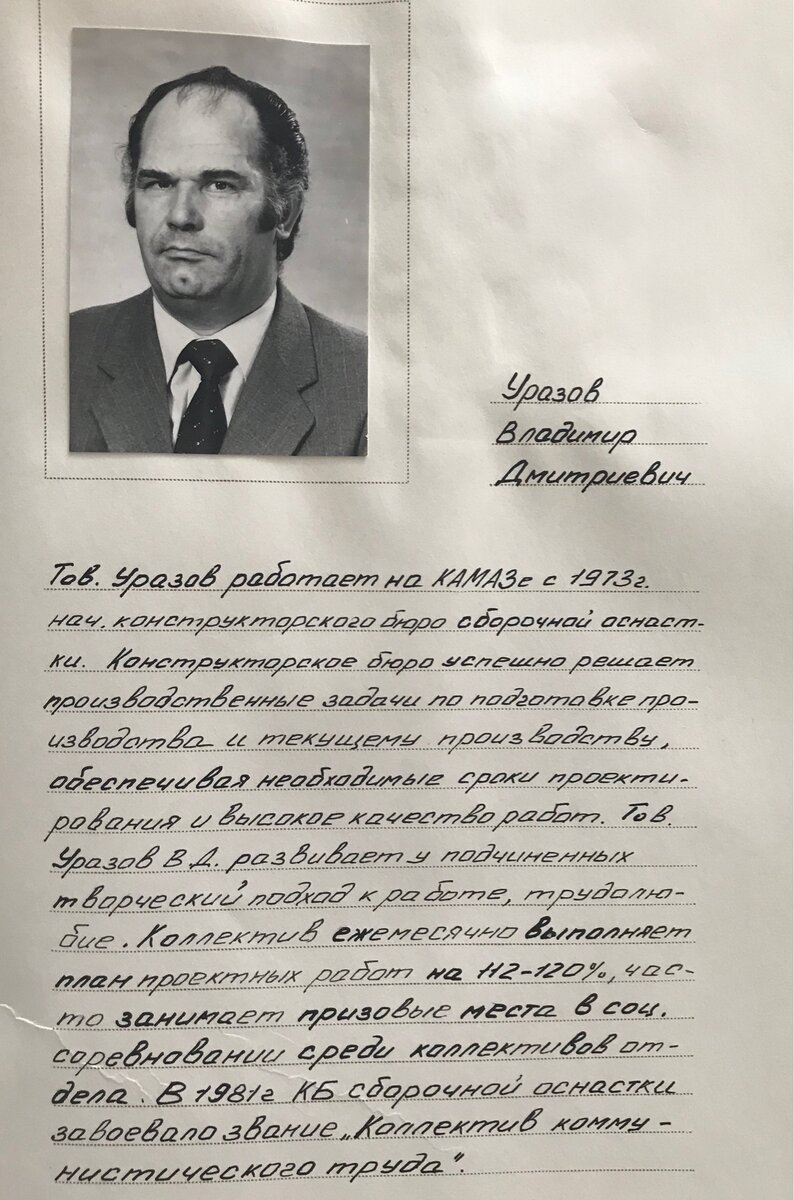 Уразов
Владимир
Дмитриевич
Тов. Уразов работает на КАМАЗе с 1973г.
нач. конструкторского бюро сборочной оснаст-
ки. Конструкторское бюро успешно решает
производственные задачи по подготовке про-
изводства и текущему производству,
обеспечивая необходимые сроки проекти-
рования и высокое качество работ. Тов.
Уразов В.Д. развивает у подчиненных
творческий подход к работе, трудолю-
бие. Коллектив ежемесячно выполняет
план проектных работ на 112-120%, час-
то занимает призовые места в соц.
соревновании среди коллективов от-
дела. В 1981г КБ сборочной оснастки
завоевало звание „Коллектив комму-
нистического труда".